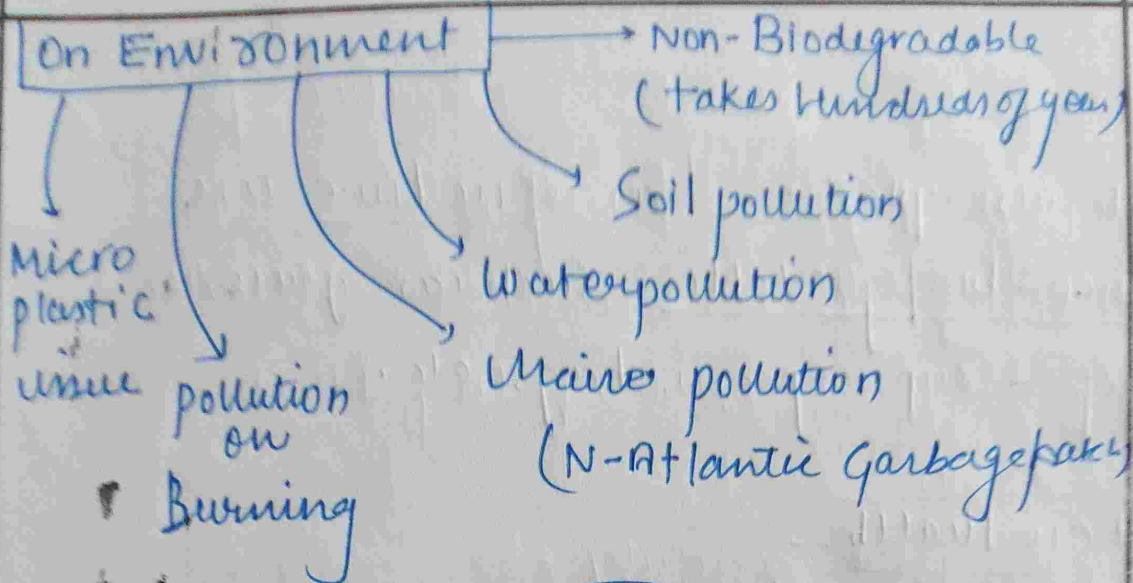 On Environment
Non-Biodegradable
(takes Hundreds of years)
Soil pollution
Water pollution
Marine pollution
(N-Atlantic Garbage
Micro
plastic
issue
pollution
on
Burning